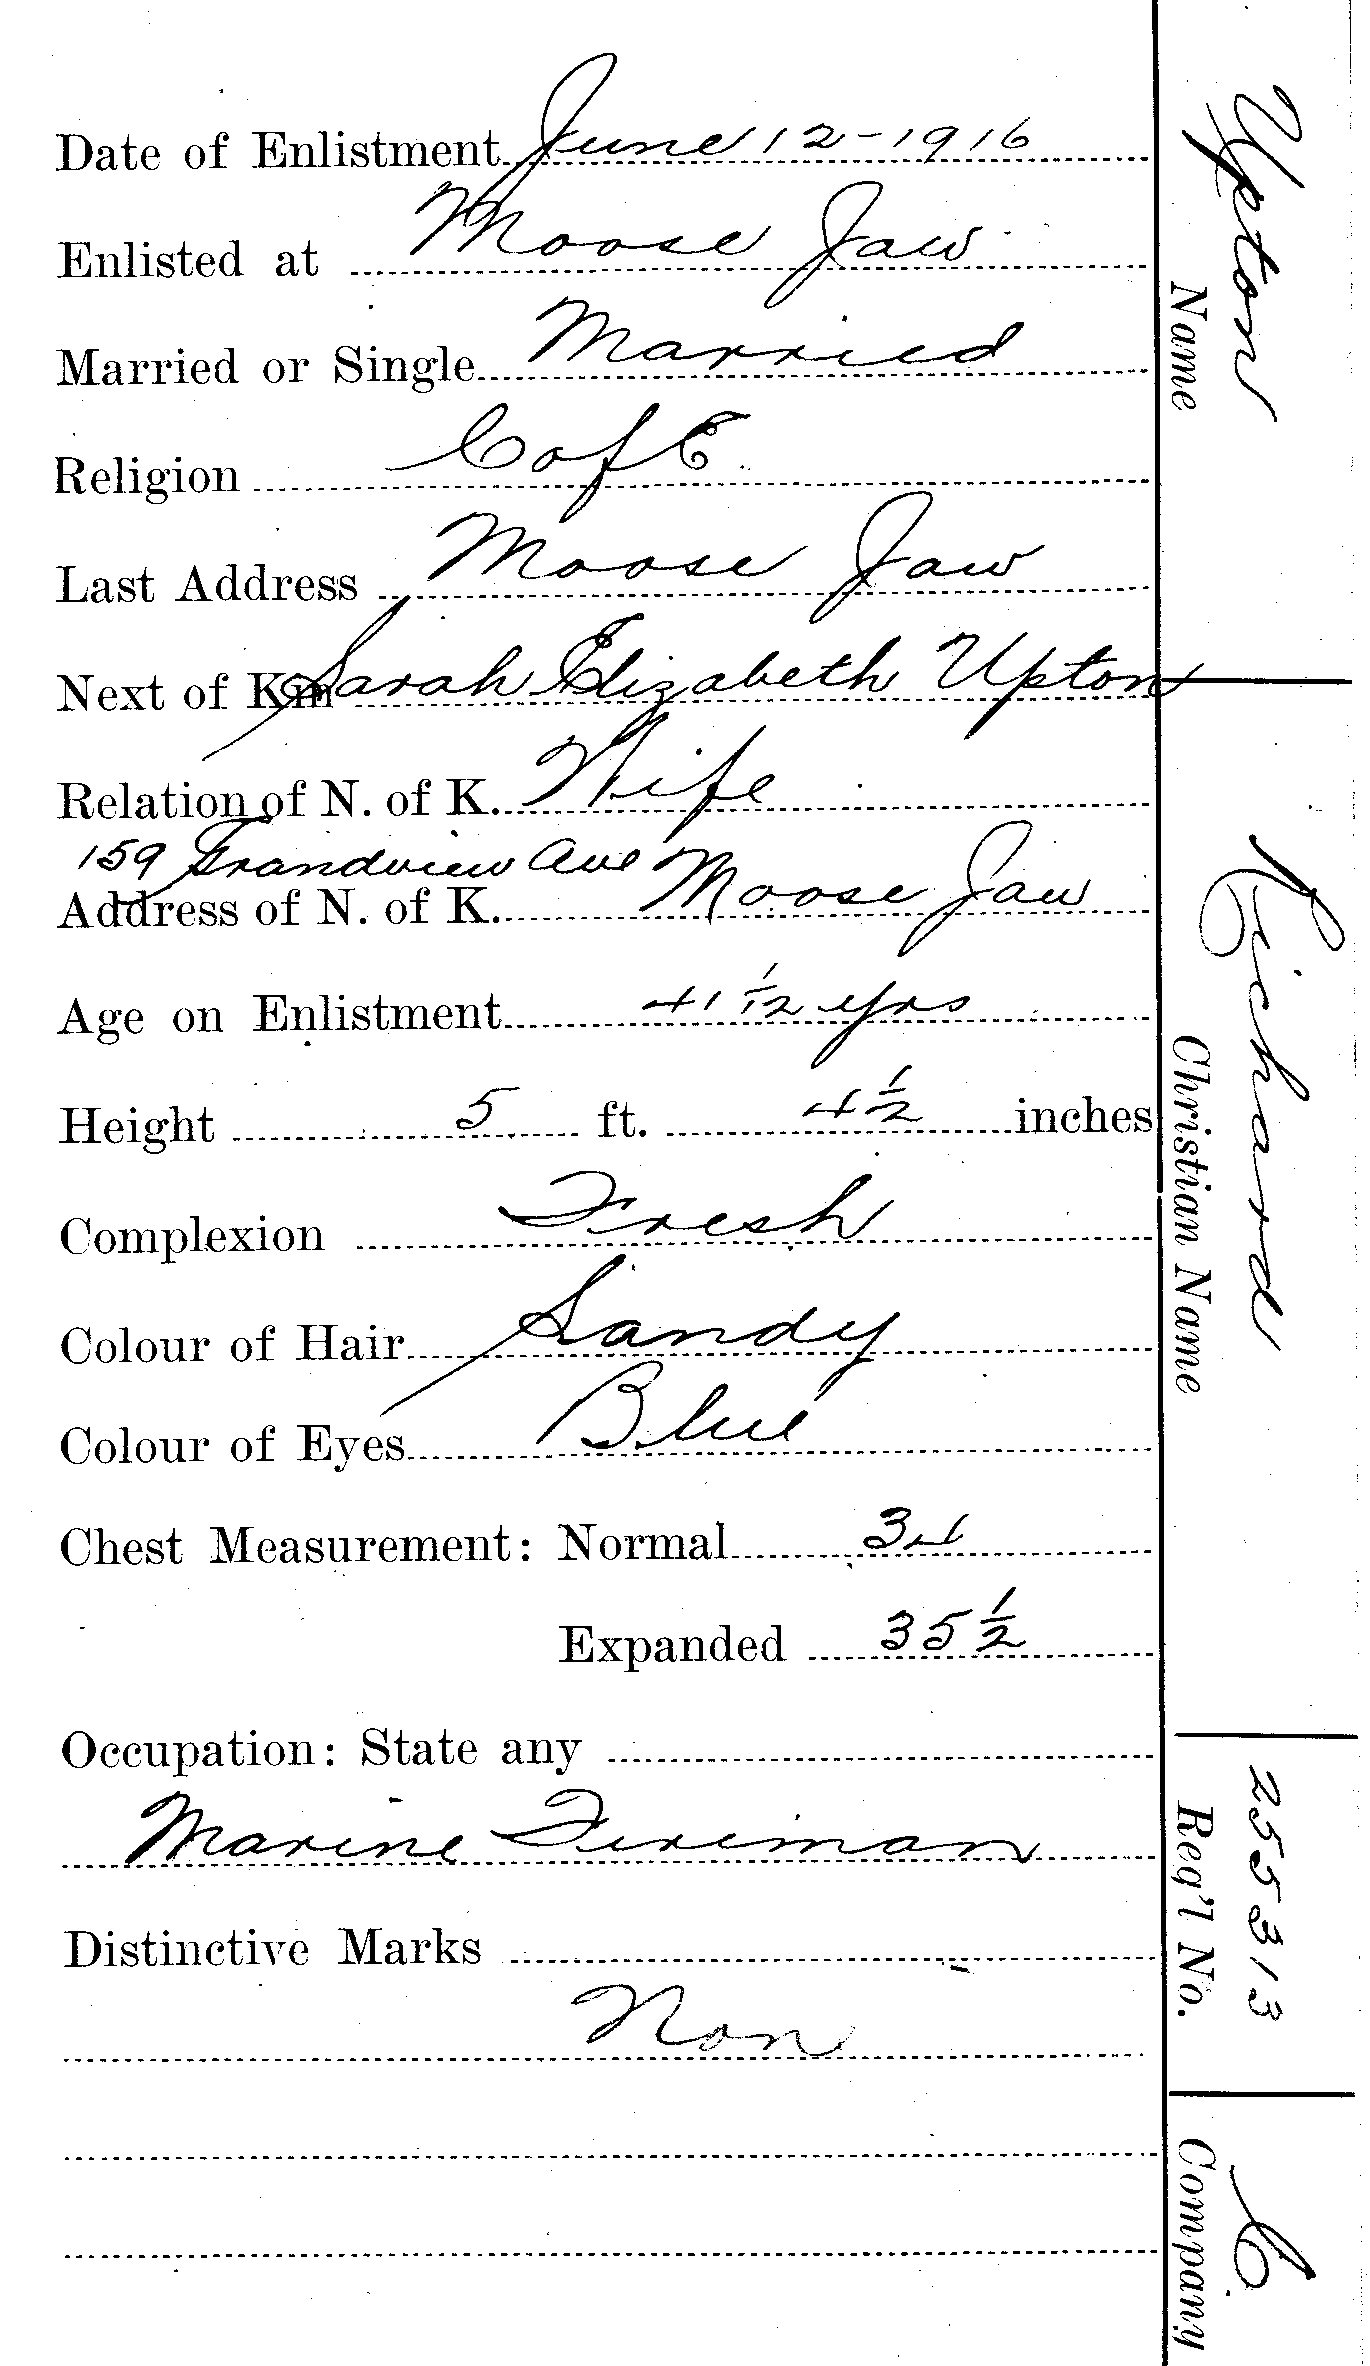 Date of Enlistment June 12-1916
Enlisted at Moose Jaw
Married or Single Married
Religion C of E
Last Address Moose Jaw
Next of Kin Sarah Elizabeth Upton
Relation of N. of K. Wife
159 Grandview Ave
Address of N. of K. Moose Jaw
Age on Enlistment 41 1/2 yrs
Height 5 ft. 4 1/2 inches
Complexion Fresh
Colour of Hair Sandy
Colour of Eyes Blue
Chest Measurement: Normal 34
Expanded 35 1/2
Occupation: State any
Marine Fireman
Distinctive Marks
Non
Upton
Name
Richard
Christian Name
255313
Reg'l No.
C
Company